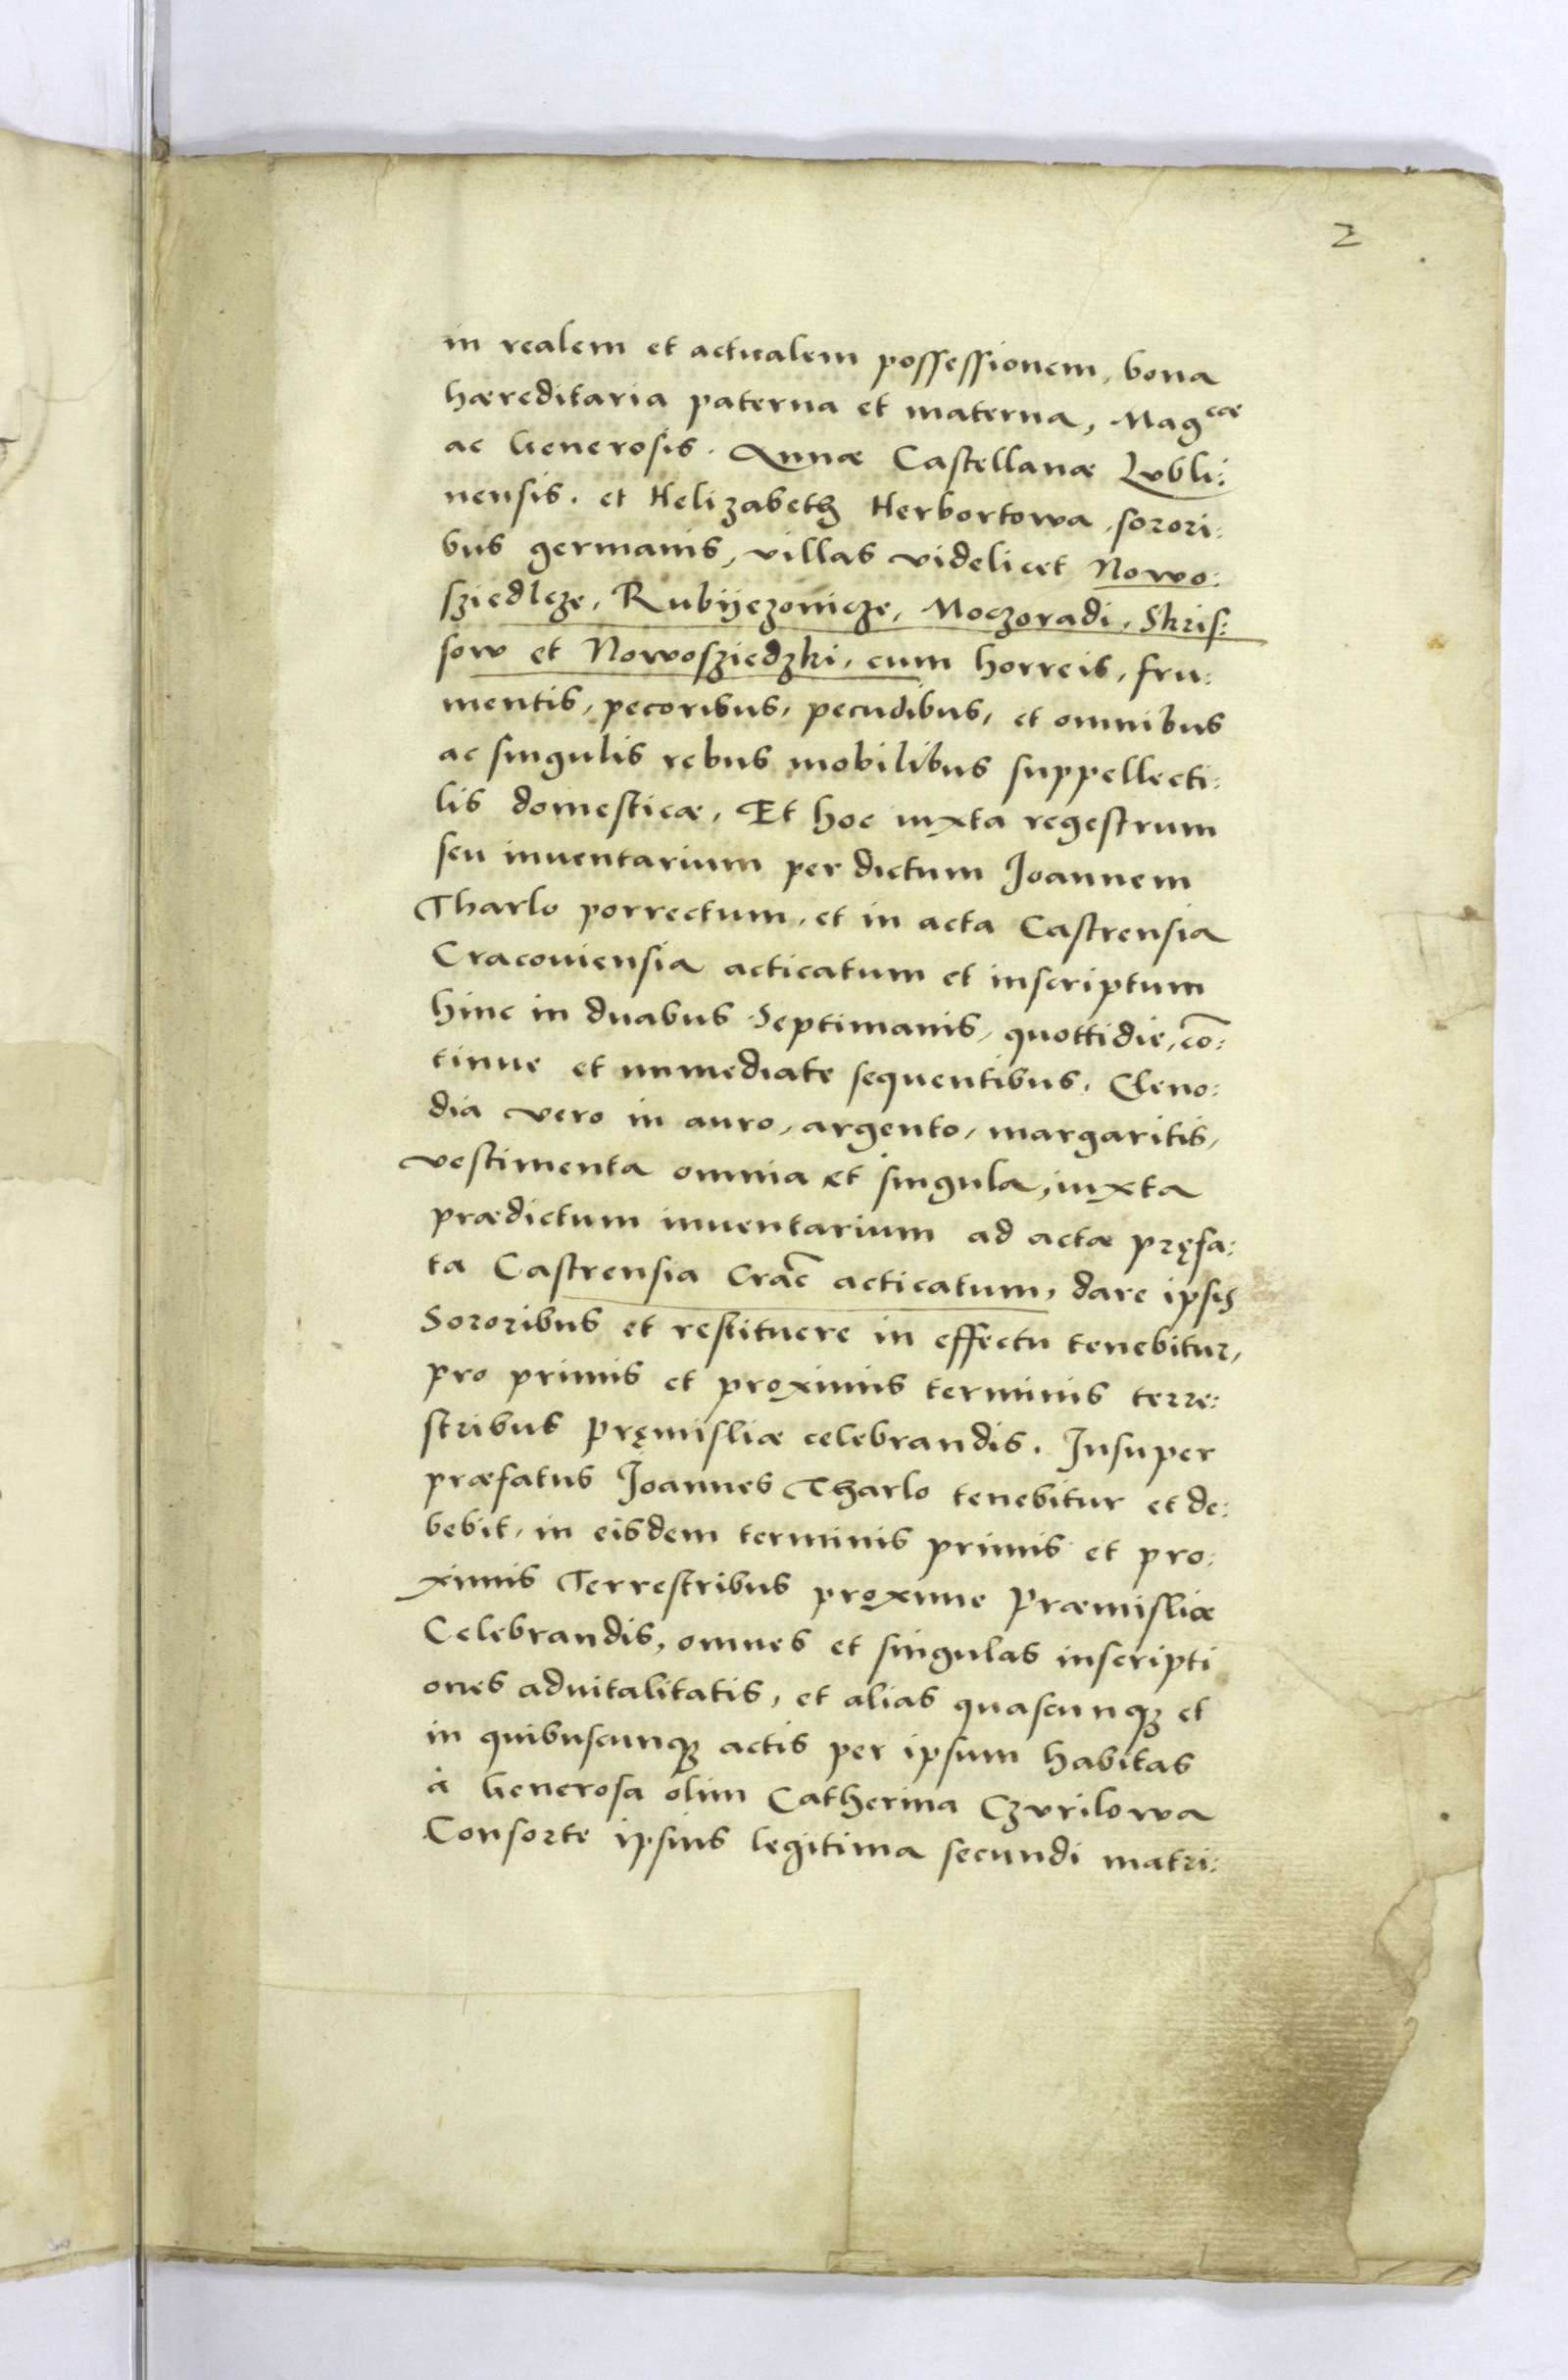 2
in realem et actualem possessionem, bona
hæreditaria paterna et materna, Mag^cæ
ac Generosis. Annæ Castellanæ Lubli:
nensis. et Helizabeth Herbortowa, sorori:
bus germanis, villas videlicet Nowo:
sziedlcze, Rubijezonicze, Moczoradi, Skris:
sow et Nowosziedzki, cum horreis, fru:
mentis, pecoribus, pecudibus, et omnibus
ac singulis rebus mobilibus suppellecti:
lis domesticæ, Et hoc iuxta regestrum
seu inuentarium per dictum Joannem
Tharlo porrectum, et in acta Castrensia
Cracouiensia acticatum et inscriptum
hinc in duabus Septimanis, quottidie, cō:
tinue et immediate sequentibus. Cleno:
dia vero in auro, argento, margaritis,
vestimenta omnia et singula, iuxta
prædictum inuentarium ad acta pręfa:
ta Castrensia Crac̄ acticatum, dare ipsis
Sororibus et restituere in effectu tenebitur,
pro primis et proximis terminis terre:
stribus Pręmisliæ celebrandis. Insuper
præfatus Joannes Tharlo tenebitur et de:
bebit, in eisdem terminis primis et pro:
ximis Terrestribus proxime Præmisliæ
Celebrandis, omnes et singulas inscripti
ones aduitalitatis, et alias quascunqȝ et
in quibuscunqȝ actis per ipsum habitas
à Generosa olim Catherina Czurilowa
Consorte ipsius legitima secundi matri: